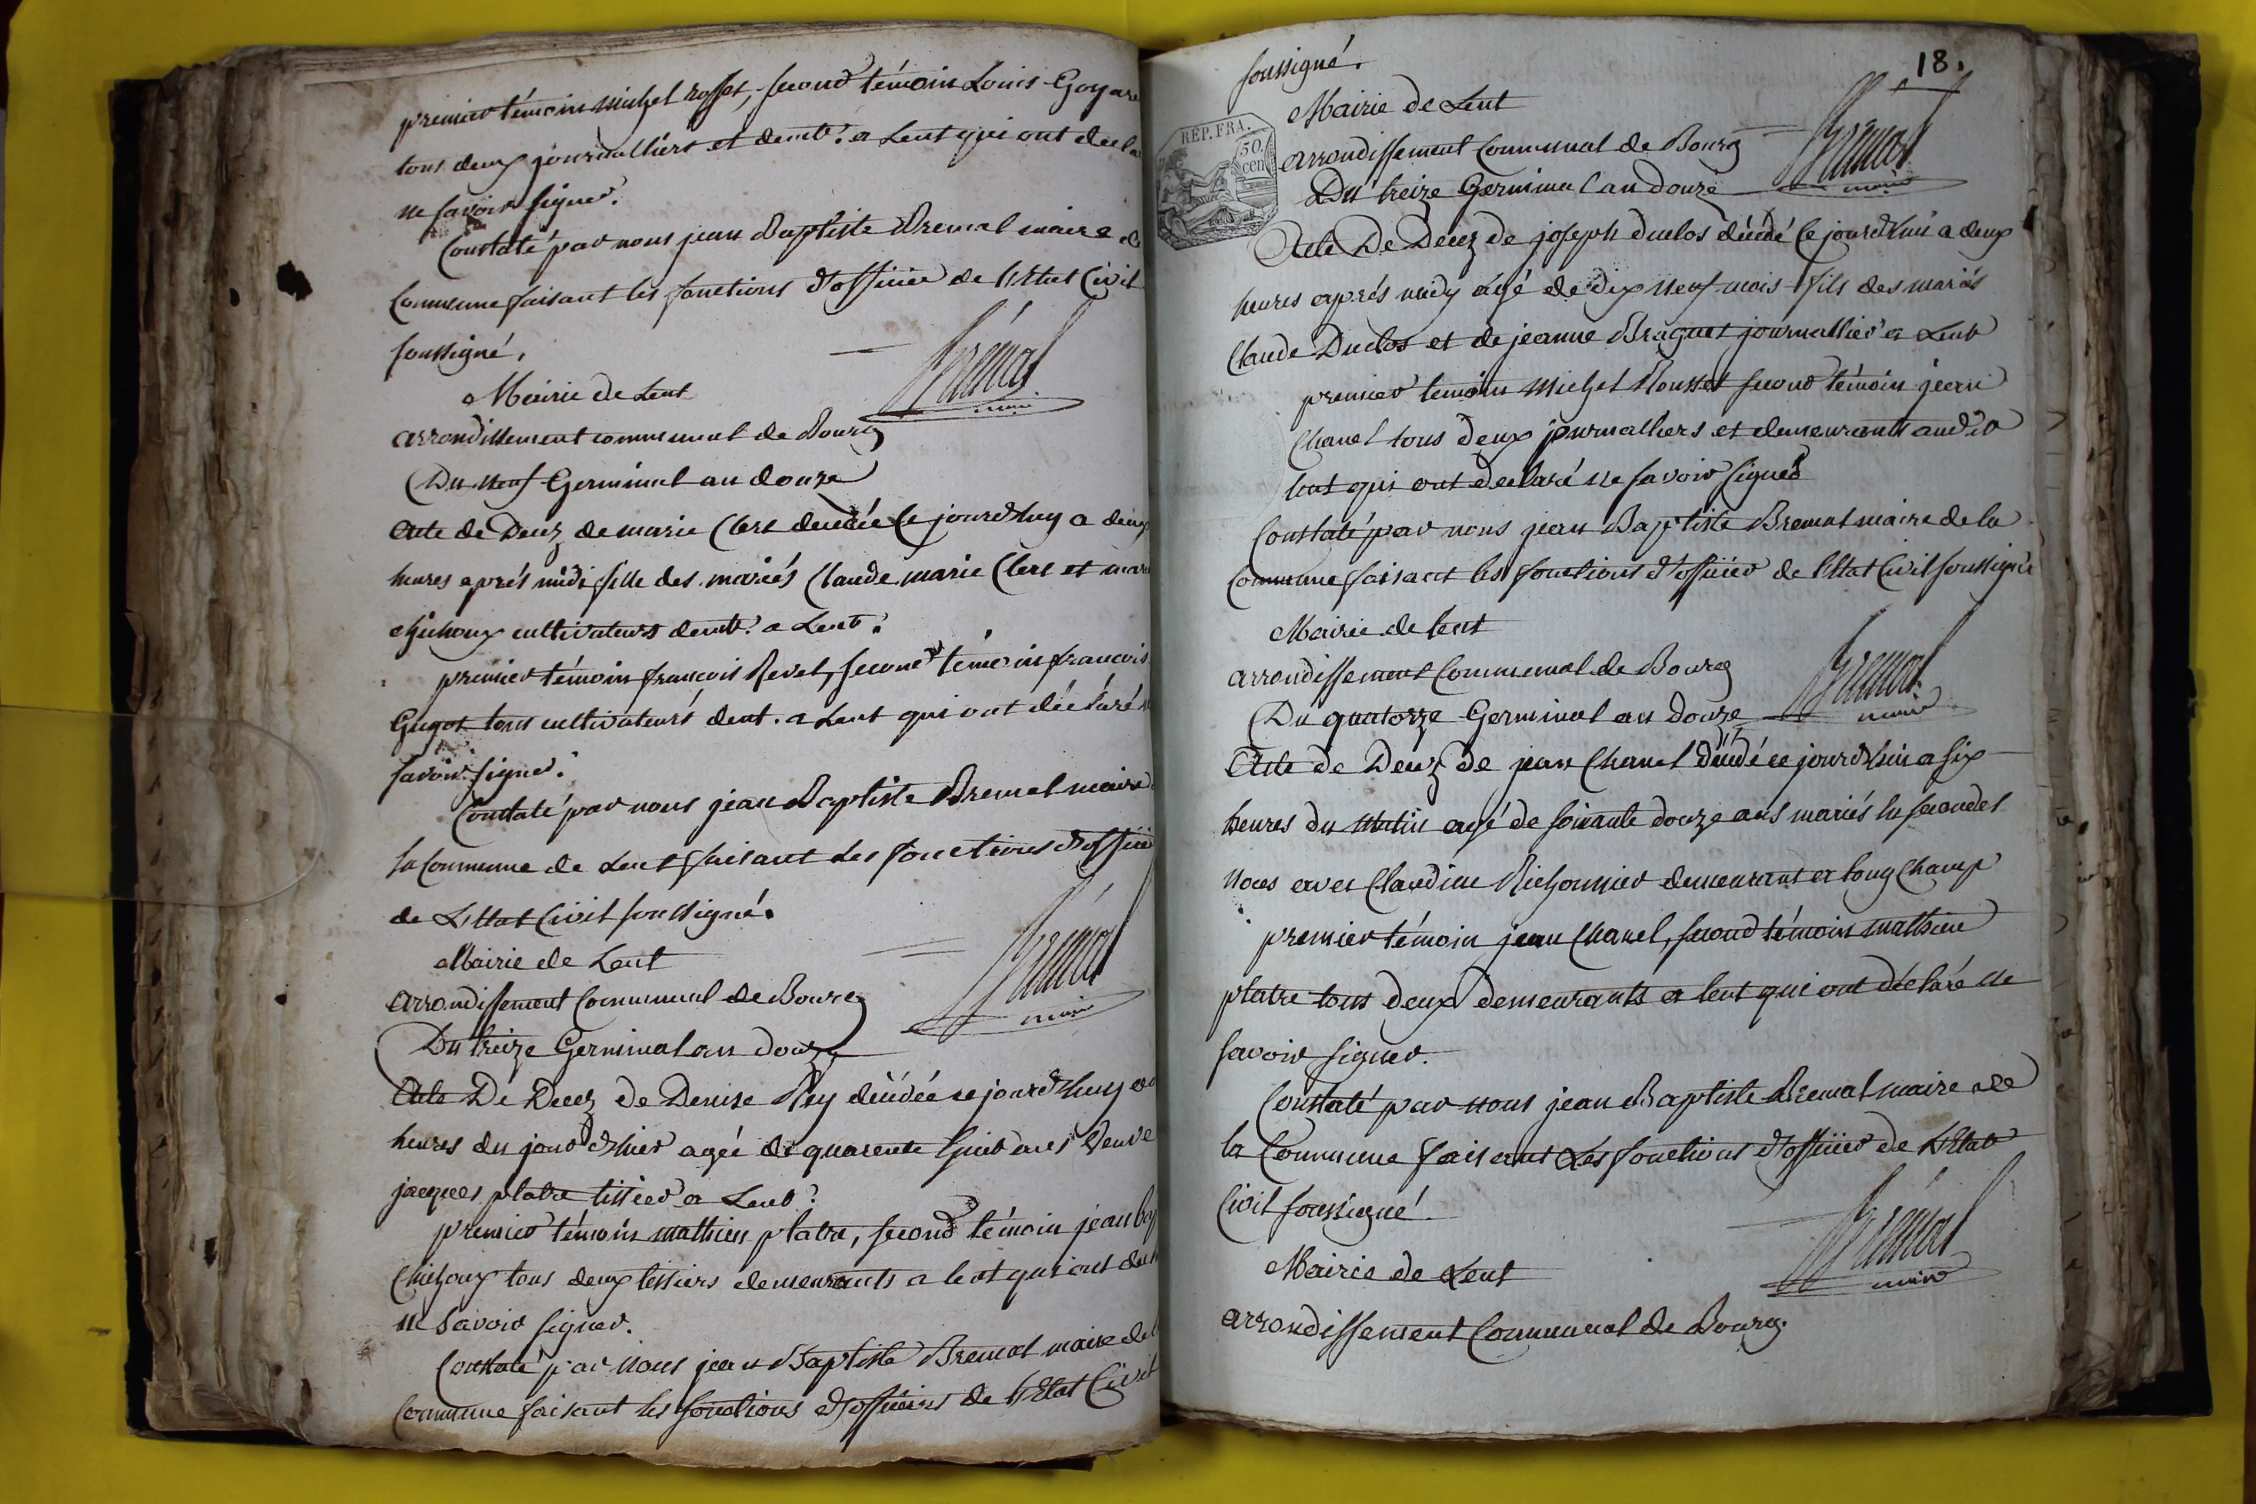 premier témoin michel rosset, second témoin Louis Goyare
tous deux journalliers et demt. a Lent qui ont decla
ne savoir signer.
Constaté par nous jean Baptiste Bremal maire de
Commune faisant les fonctions d'officier de l'Etat Civil
soussigné,
Mairie de Lent
Brémal
maire
arrondissement communal de Bourg
Du neuf Germinal an douze
Acte de Decez de marie Clerc decedée Ce jourd'huy a deux
heures aprés midi fille des mariés Claude marie Clerc et marie
chichoux cultivateurs demt. a Lent.
premier témoin francois Revel, second témoin francois
Guyot tous cultivateurs demt. a Lent qui ont déclaré
savoir signer.
Constaté par nous jean Baptiste Bremal maire
la Commune de Lent faisant les fonctions d'officier
de L'Etat Civil soussigné.
Mairie de Lent
Brémal
maire
arrondissement Communal de Bourg
Du treize Germinal an douze
Acte De Decez de Denise Rey décédée ce jourd'huy
heures du jour d'hier agée de quarente huit ans Veuve
jacques platre tissier a Lent.
premier témoin mathieu platre, second témoin jean
Chichoux tous deux tissiers demeurants a lent qui ont
ne savoir signer.
Constaté par nous jean Baptiste Bremal maire de
Commune faisant les fonctions d'officiers de l'Etat Civil
18.
soussigné.
Mairie de Lent
REP. FRA.
50.
cen
Brémal
maire
arrondissement Communal de Bourg
Du treize Germinal an douze
Acte De Decez de joseph Duclos décédé Ce jourd'hui a deux
heures aprés midy agé de dix neuf mois fils des mariés
Claude Duclos et de jeanne Braguet journallier a Lent
premier temoin Michel Rousset second témoin jean
Chanel tous deux journalliers et demeurants audit
lent qui ont declaré ne savoir signer
Constaté par nous jean Baptiste Bremal maire de la
Commune faisant les fonctions d'officier de l'Etat Civil soussigné
Mairie de lent
Brémal
maire
arrondissement Communal de Bourg
Du quatorze Germinal an douze
Acte de Decez de jean Chanel décédé ce jourd'hui a six
heures du Matin agé de soixante douze ans mariés en secondes
noces avec Claudine Richonnier demeurant a long Champ
premier témoin jean Chanel, second témoin mathieu
platre tous deux demeurants a lent qui ont déclaré ne
savoir signer.
Constaté par nous jean Baptiste Bremal maire de
la Commune faisant Les fonctions d'officier de L'Etat
Civil soussigné
Brémal
maire
Mairie de Lent
arrondissement Communal de Bourg.